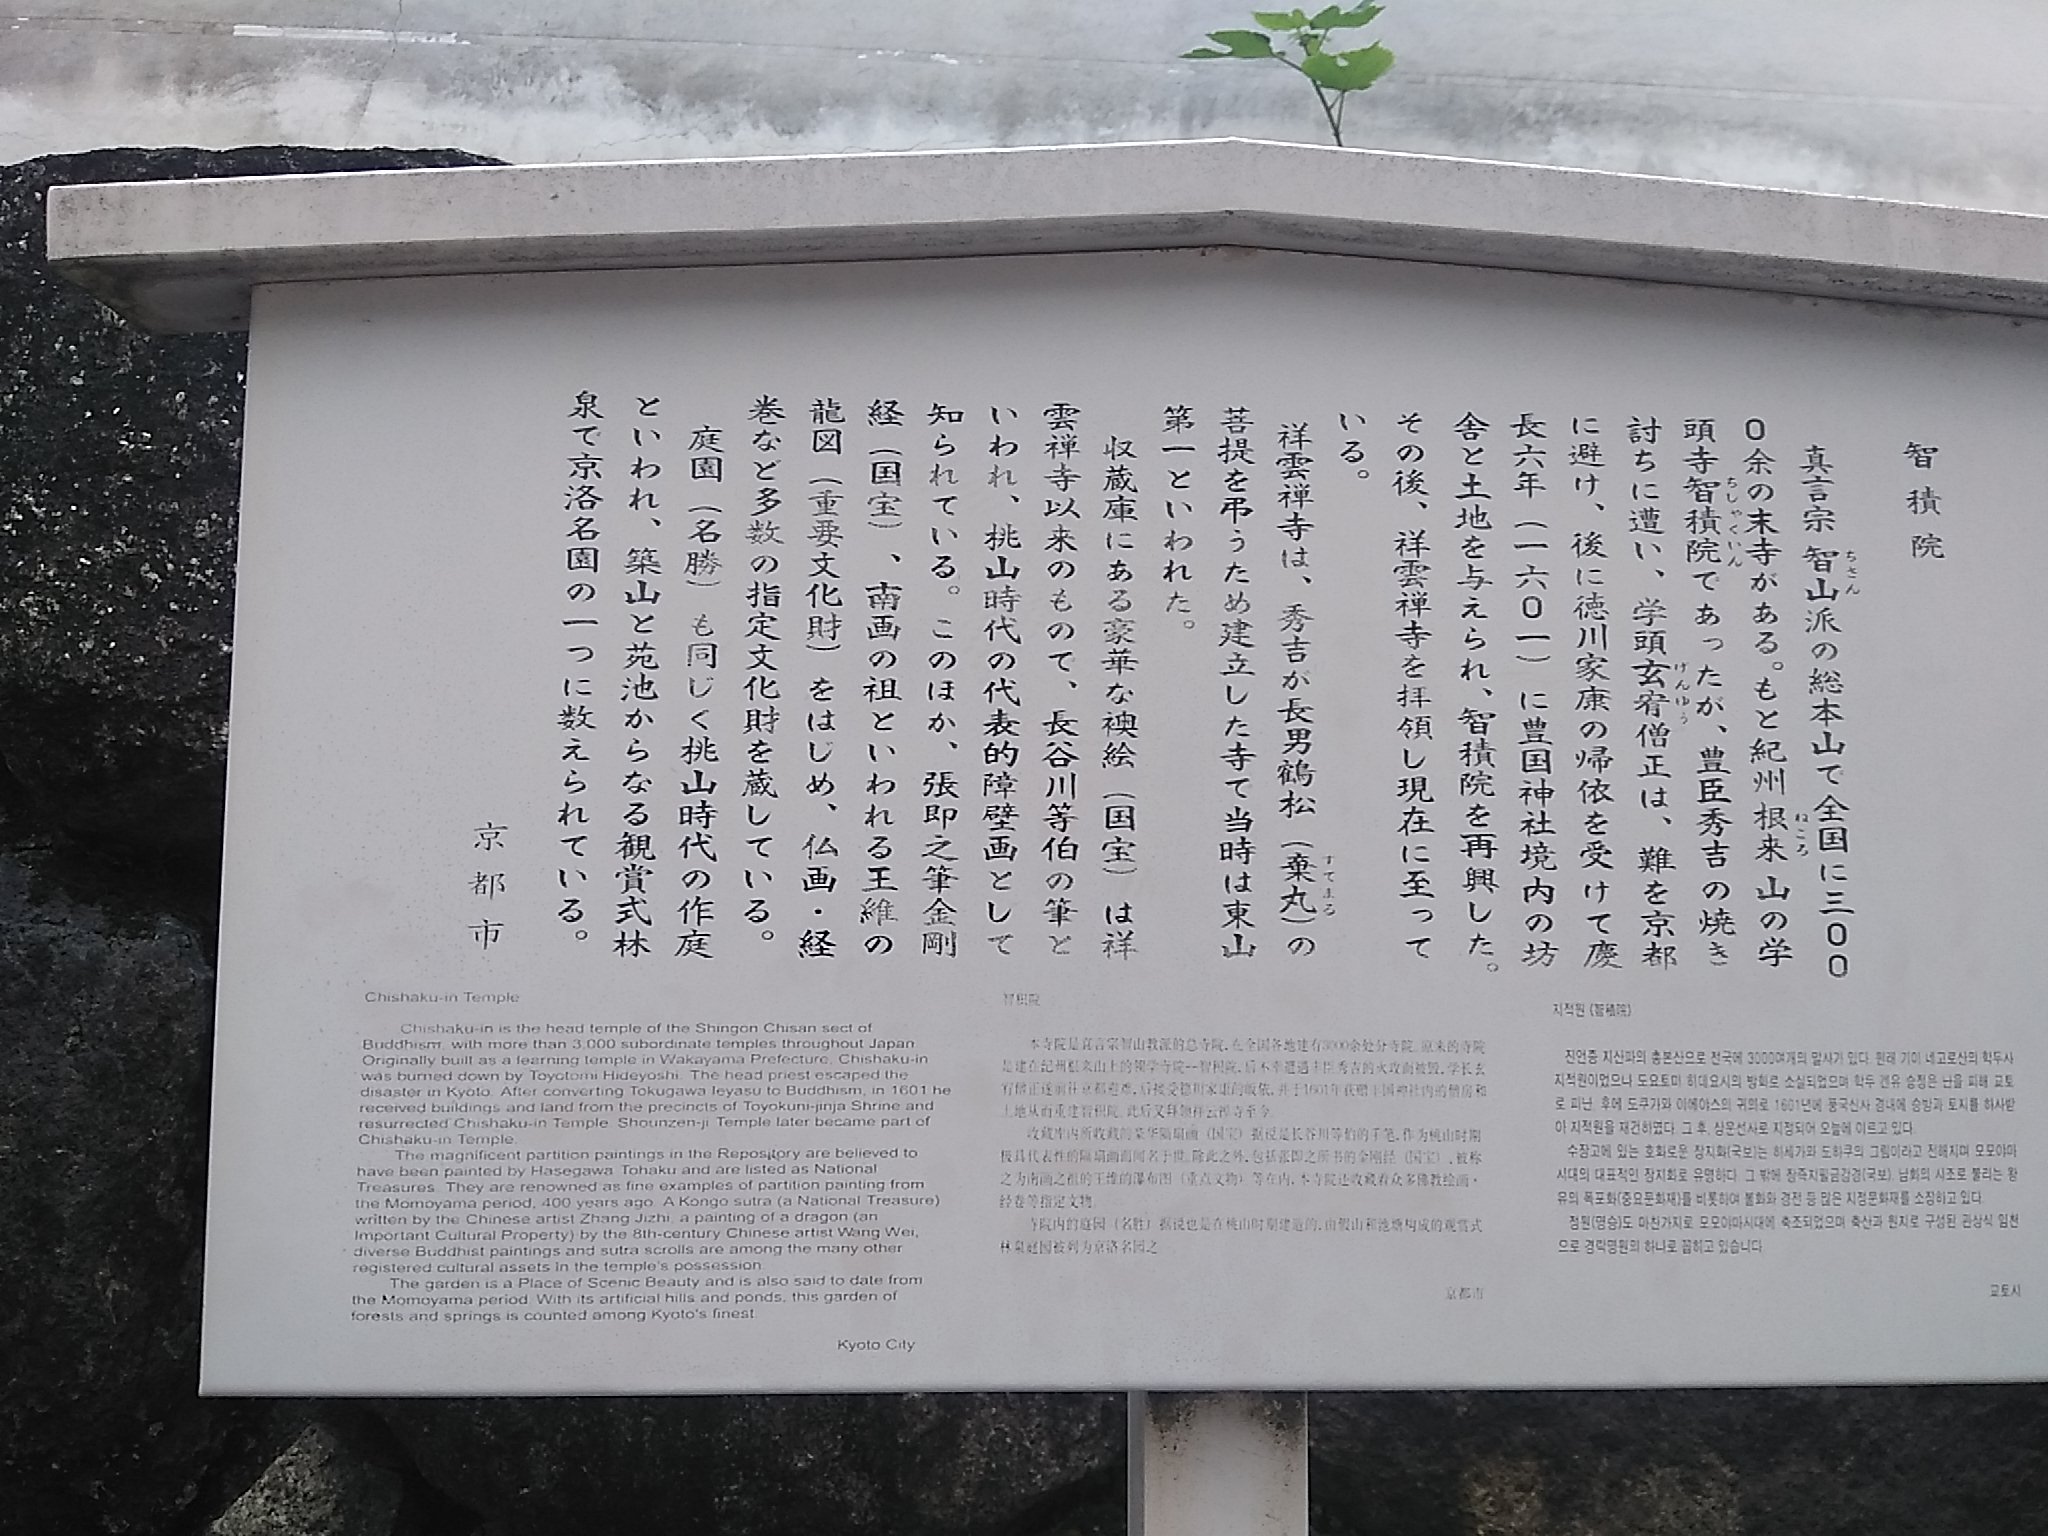 智積院
真言宗智山派の総本山で全国に三〇〇
〇余の末寺がある。もと紀州根来山の学
頭寺智積院であったが、豊臣秀吉の焼き
討ちに遭い、学頭玄宥僧正は、難を京都
に避け、後に徳川家康の帰依を受けて慶
長六年（一六〇一）に豊国神社境内の坊
舎と土地を与えられ、智積院を再興した。
その後、祥雲禅寺を拝領し現在に至って
いる。
祥雲禅寺は、秀吉が長男鶴松（棄丸）の
菩提を弔うため建立した寺で当時は東山
第一といわれた。
収蔵庫にある豪華な襖絵（国宝）は祥
雲禅寺以来のもので、長谷川等伯の筆と
いわれ、桃山時代の代表的障壁画として
知られている。このほか、張即之筆金剛
経（国宝）、南画の祖といわれる王維の
龍図（重要文化財）をはじめ、仏画・経
巻など多数の指定文化財を蔵している。
庭園（名勝）も同じく桃山時代の作庭
といわれ、築山と苑池からなる観賞式林
泉で京洛名園の一つに数えられている。
京都市
Chishaku-in Temple
Chishaku-in is the head temple of the Shingon Chisan sect of
Buddhism, with more than 3,000 subordinate temples throughout Japan.
Originally built as a learning temple in Wakayama Prefecture, Chishaku-in
was burned down by Toyotomi Hideyoshi. The head priest escaped the
disaster in Kyoto. After converting Tokugawa Ieyasu to Buddhism, in 1601 he
received buildings and land from the precincts of Toyokuni-jinja Shrine and
resurrected Chishaku-in Temple. Shounzen-ji Temple later became part of
Chishaku-in Temple.
The magnificent partition paintings in the Repository are believed to
have been painted by Hasegawa Tohaku and are listed as National
Treasures. They are renowned as fine examples of partition painting from
the Momoyama period, 400 years ago. A Kongo sutra (a National Treasure)
written by the Chinese artist Zhang Jizhi, a painting of a dragon (an
Important Cultural Property) by the 8th-century Chinese artist Wang Wei,
diverse Buddhist paintings and sutra scrolls are among the many other
registered cultural assets in the temple's possession.
The garden is a Place of Scenic Beauty and is also said to date from
the Momoyama period. With its artificial hills and ponds, this garden of
forests and springs is counted among Kyoto's finest.
Kyoto City
智积院
本寺院是真言宗智山教派的总寺院,在全国各地建有3000余处分寺院。原来的寺院
是建在纪州根来山上的领学寺院一智积院,后不幸遭遇丰臣秀吉的火攻而被毁,学长玄
宥僧正遂前往京都避难,后接受德川家康的皈依,并于1601年获赠丰国神社内的僧房和
土地从而重建智积院。此后又拜领祥云禅寺至今。
收藏库内所收藏的豪华隔扇画（国宝）据说是长谷川等伯的手笔,作为桃山时期
极具代表性的隔扇画而闻名于世。除此之外,包括张即之所书的金刚经（国宝）、被称
之为南画之祖的王维的瀑布图（重点文物）等在内,本寺院还收藏着众多佛教绘画・
经卷等指定文物。
寺院内的庭园（名胜）据说也是在桃山时期建造的,由假山和池塘构成的观赏式
林泉庭园被列为京洛名园之一
京都市
지적원 (智積院)
진언종 지산파의 총본산으로 전국에 3000여개의 말사가 있다. 원래 기이 네고로산의 학두사
지적원이었으나 도요토미 히데요시의 방화로 소실되었으며 학두 겐유 승정은 난을 피해 교토
로 피난, 후에 도쿠가와 이에야스의 귀의로 1601년에 풍국신사 경내에 승방과 토지를 하사받
아 지적원을 재건하였다. 그 후, 상운선사로 지정되어 오늘에 이르고 있다.
수장고에 있는 호화로운 장지화(국보)는 하세가와 도하쿠의 그림이라고 전해지며 모모야마
시대의 대표적인 장지화로 유명하다. 그 밖에 장즉지필금강경(국보), 남화의 시조로 불리는 왕
유의 폭포화(중요문화재)를 비롯하여 불화와 경전 등 많은 지정문화재를 소장하고 있다.
정원(명승)도 마찬가지로 모모야마시대에 축조되었으며 축산과 원지로 구성된 관상식 임천
으로 경락명원의 하나로 꼽히고 있습니다.
교토시